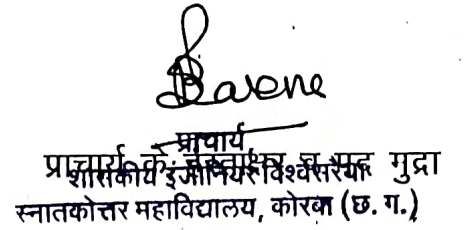 प्राचार्य
प्राचार्य के हस्ताक्षर व पद मुद्रा
शासकीय इंजीनियर विश्वेसरैया
स्नातकोत्तर महाविद्यालय, कोरबा (छ. ग.)